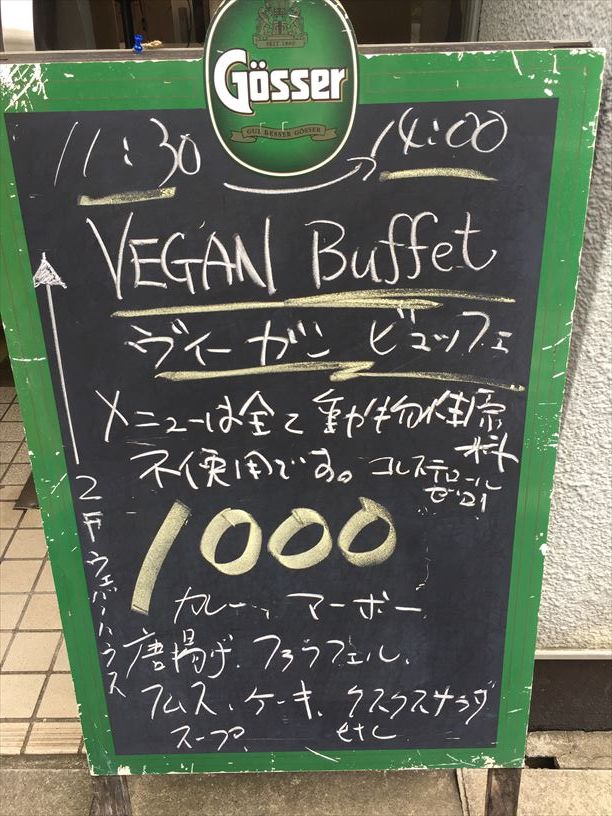 SEIT 1860
Gösser
GUT BESSER GÖSSER
11:30 14:00
VEGAN Buffet
ヴィーガン ビュッフェ
メニューは全て動物性原料
不使用です。コレステロール
ゼロ!
1000
カレー、マーボー、
唐揚げ、ファラフェル、
フムス、ケーキ、クスクスサラダ
スープ etc
2Fウェバーハウス